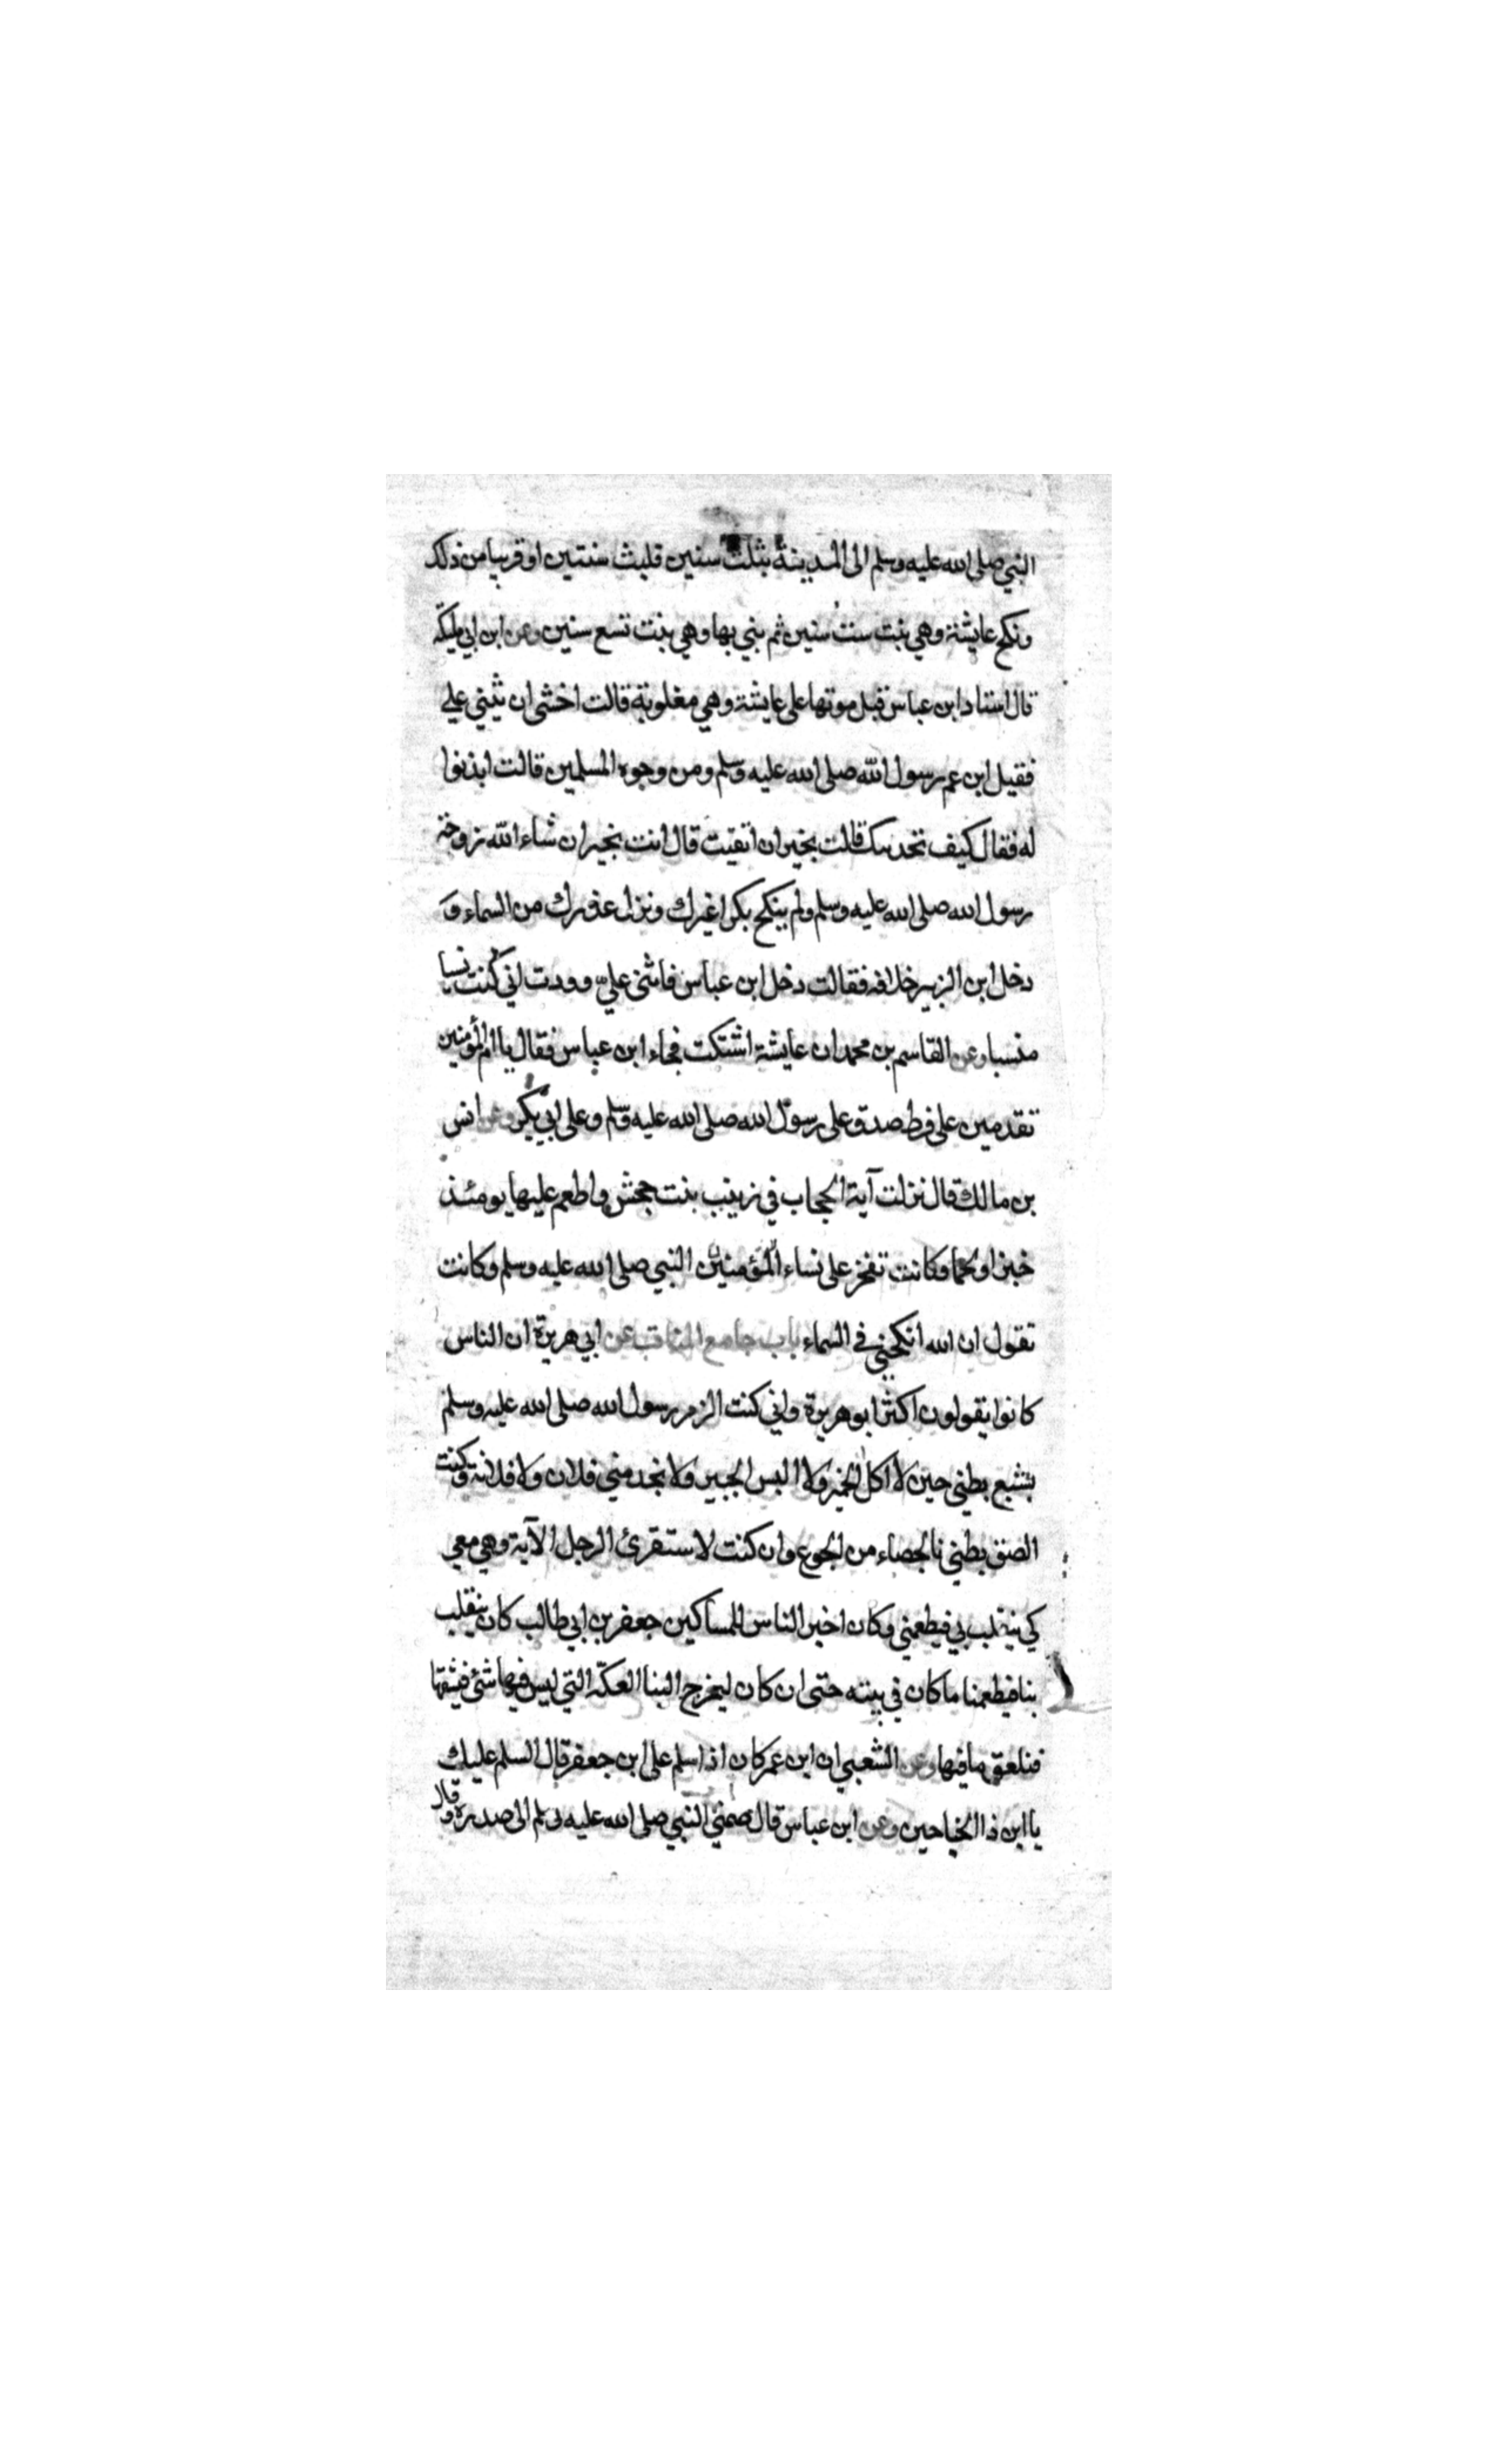 النبي صلى الله عليه وسلم الى المدينة بثلث سنين فلبث سنتين او قريبا من ذلك
ونكح عايشة وهي بنت ست سنين ثم بني بها وهي بنت تسع سنين وعن ابن ابي مليكة
قال استاد ابن عباس قبل موتها على عايشة وهي مغلوبة قالت اخشى ان يثني علي
فقيل ابن عم رسول الله صلى الله عليه وسلم ومن وجوه المسلمين قالت ايذنوا
له فقال كيف تجدينك قالت بخير ان اتقيت قال انت بخير ان شاء الله زوجة
رسول الله صلى الله عليه وسلم ولم ينكح بكرا غيرك ونزل عذرك من السماء و
دخل ابن الزبير خلافه فقالت دخل ابن عباس فاثنى علي ووددت اني كنت نسيا
منسيا وعن القاسم بن محمد ان عايشة اشتكت فجاء ابن عباس فقال يا ام المؤمنين
تقدمين على فرط صدق على رسول الله صلى الله عليه وسلم وعلى ابي بكر وعن انس
بن مالك قال نزلت آية الحجاب في زينب بنت جحش واطعم عليها يومئذ
خبزا ولحما وكانت تفخر على نساء المؤمنين النبي صلى الله عليه وسلم وكانت
تقول ان الله انكحني في السماء باب جامع المناقب عن ابي هريرة ان الناس
كانوا يقولون اكثر ابو هريرة واني كنت الزم رسول الله صلى الله عليه وسلم
بشبع بطني حين لا اكل الخمير ولا البس الحبير ولا يخدمني فلان ولا فلانة وكنت
الصق بطني بالحصاء من الجوع وان كنت لاستقرئ الرجل الآية وهي معي
كي ينقلب بي فيطعمني وكان اخير الناس للمساكين جعفر بن ابي طالب كان ينقلب
بنا فيطعمنا ما كان في بيته حتى ان كان ليخرج الينا العكة التي ليس فيها شئ فيشقها
فنلعق ما فيها وعن الشعبي ان ابن عمر كان اذا سلم على ابن جعفر قال السلم عليك
يا ابن ذا الجناحين وعن ابن عباس قال ضمني النبي صلى الله عليه وسلم الى صدره وقال